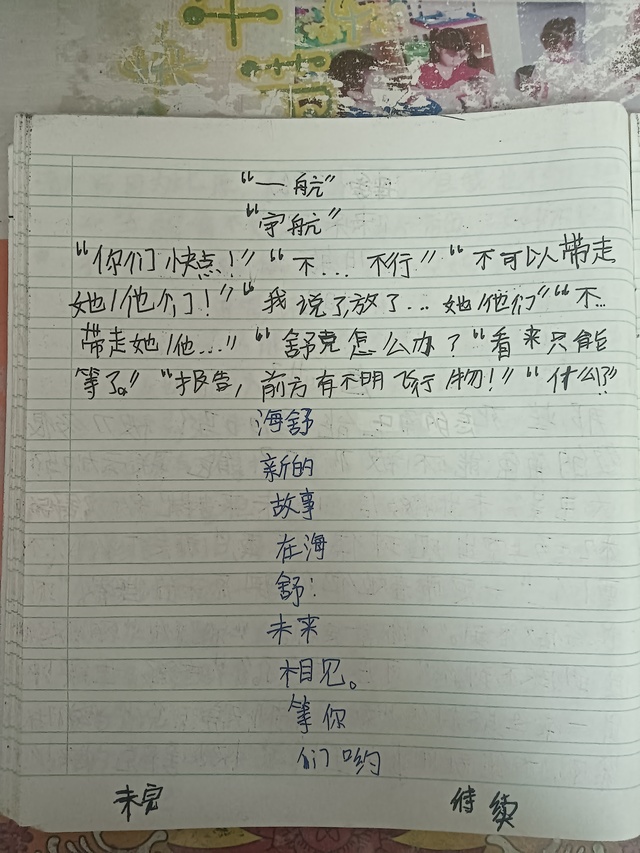 “一航”
“宇航”
“你们快点！”“不... 不行”“不可以带走
她/他们！”“我说了,放了... 她/他们”“不..
带走她/他...”“舒克怎么办？“看来只能
等了。”“报告，前方有不明飞行物！”“什么？”
海舒
新的
故事
在海
舒：
未来
相见。
等你
们哟
未完 待续